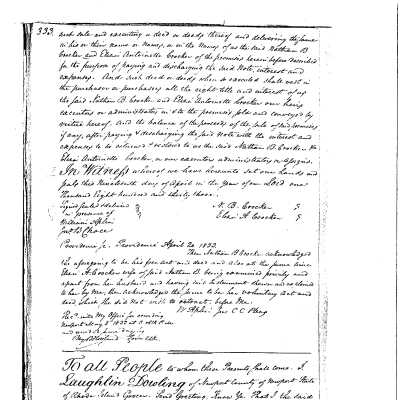 333
such sale and executing a deed or deeds thereof and delivering the same
in his or their name or names, or in the names of us the said Nathan B.
Crocker and Eliza Antoinette Crocker of the premises herein before described
for the purpose of paying and discharging the said Note, interest and
expenses. And such deed or deeds when so executed shall vest in
the purchaser or purchasers all the right title and interest of us
the said Nathan B. Crocker and Eliza Antoinette Crocker our heirs
executors or administrators in & to the premises sold and conveyed by
virtue hereof. And the balance of the proceeds of the sale of said premises
if any, after paying & discharging the said Note with the interest and
expenses to be returned & restored to us the said Nathan B. Crocker &
Eliza Antoinette Crocker, or our executors administrators or assigns.
In Witness whereof we have hereunto set our hands and
seals this Nineteenth day of April in the year of our Lord one
thousand Eight hundred and thirty three.
Signed sealed & delivered
in presence of
William Aplin
B. Chace
N. B. Crocker S
Eliza A. Crocker S
Providence Sc. Providence April 20. 1833.
Then Nathan B. Crocker acknowledged
the aforegoing to be his free act and deed and also at the same time
Eliza A. Crocker wife of said Nathan B. being examined privily and
apart from her husband and having said instrument shown and
to her by me, then acknowledged the same to be her voluntary act and
deed & that she did not wish to retract. before me
W. Aplin Jus. C C Pleas
Recd into My Office for recording
May 3d 1833 at
and
To all People to whom these Presents shall come. I
Laughlin Dowling of Newport County of Newport State
of Rhode Island Send Greeting. Know Ye. That I the said